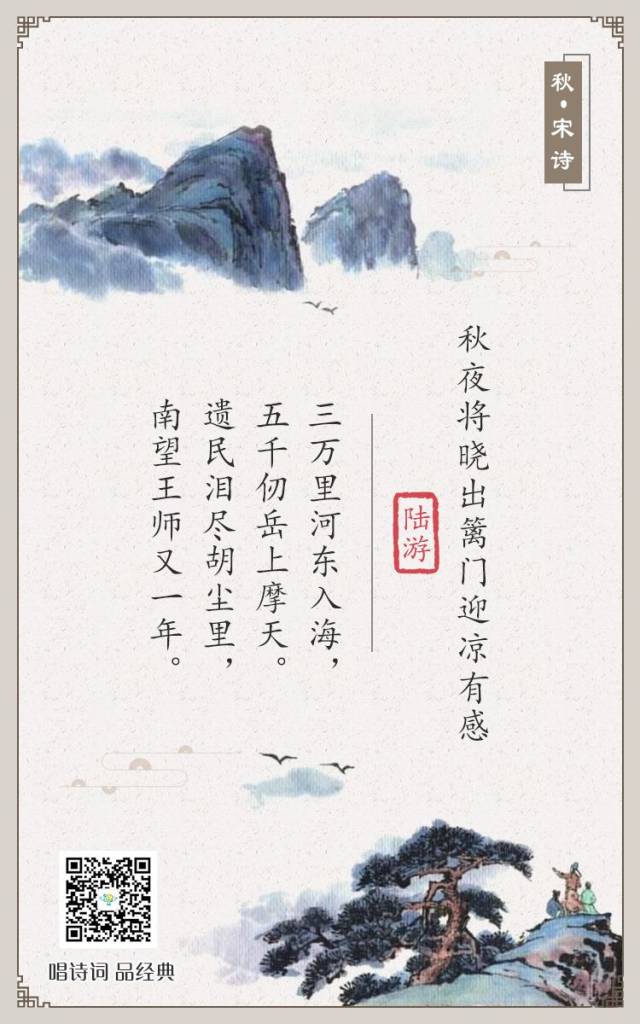 秋·宋诗
秋夜将晓出篱门迎凉有感
陆游
三万里河东入海，
五千仞岳上摩天。
遗民泪尽胡尘里，
南望王师又一年。
唱诗词 品经典